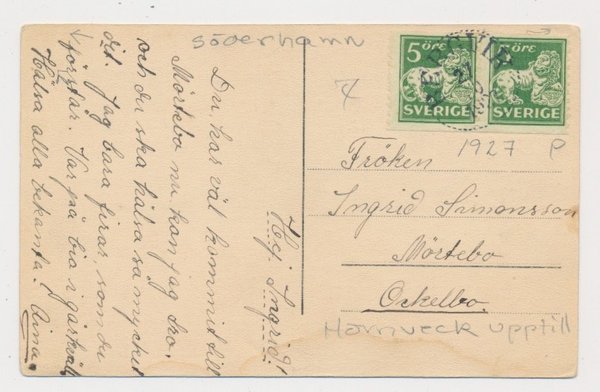 Söderhamn
Hej Ingrid!
Du har väl kommit till
Mörtebo nu kan jag tro.
och du ska hälsa så mycket
dit. Jag bara firar som du
förstår. Var på bio i går kväll
Hälsa alla bekanta. Aina.
5 ÖRE
SVERIGE
5 ÖRE
SVERIGE
1927 P
Fröken
Ingrid Simonsson
Mörtebo
Ockelbo.
Hörnveck upptill